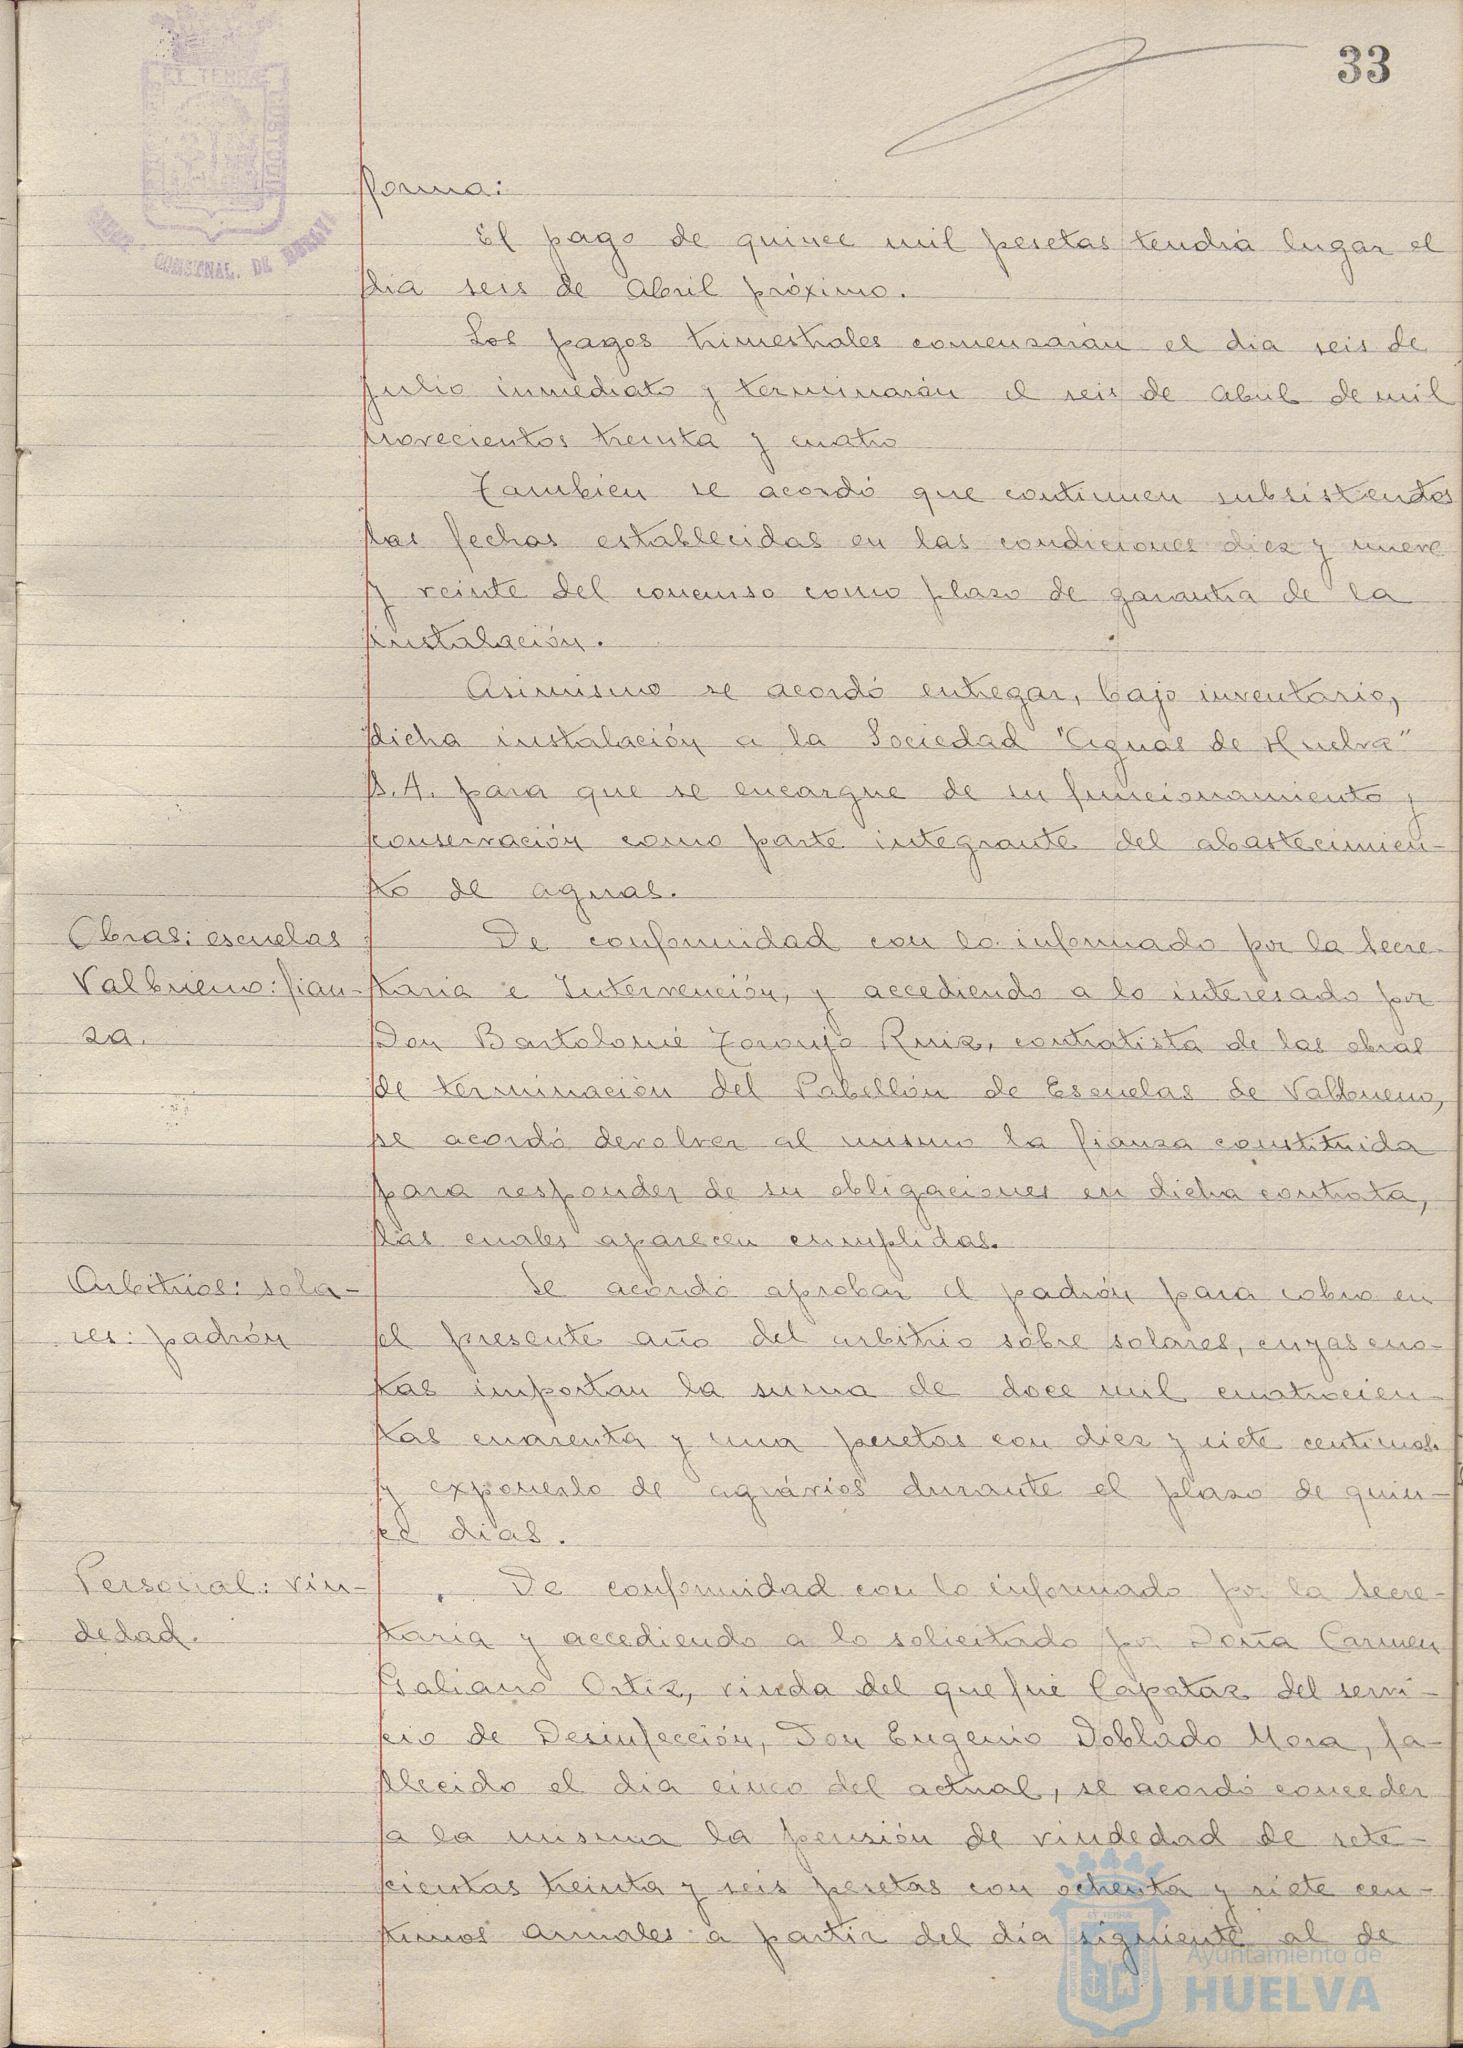 33
forma:
El pago de quince mil pesetas tendrá lugar el
dia seis de Abril próximo.
Los pagos trimestrales comenzarán el dia seis de
julio inmediato y terminarán el seis de Abril de mil
novecientos treinta y cuatro
Tambien se acordó que continuen subsistendos
las fechas establecidas en las condiciones diez y nueve
y veinte del concurso como plazo de garantia de la
instalación.
Asimismo se acordó entregar, bajo inventario,
dicha instalación a la Sociedad "Aguas de Huelva"
S.A. para que se encargue de su funcionamiento y
conservación como parte integrante del abastecimien-
to de aguas.
Obras: escuelas
Valbueno: fian-
za.
De conformidad con lo informado por la Secre-
taria e Intervención, y accediendo a lo interesado por
Don Bartolomé Toronjo Ruiz, contratista de las obras
de terminación del Pabellón de Escuelas de Valbueno,
se acordó devolver al mismo la fianza constituida
para responder de su obligaciones en dicha contrata,
las cuales aparecen cumplidas.
Arbitrios: sola-
res: padrón
Se acordó aprobar el padrón para cobro en
el presente año del arbitrio sobre solares, cuyas cuo-
tas importan la suma de doce mil cuatrocien-
tas cuarenta y una pesetas con diez y siete centimos
y exponerlo de agravios durante el plazo de quin-
ce dias.
Personal: viu-
dedad.
De conformidad con lo informado por la Secre-
taria y accediendo a lo solicitado por Doña Carmen
Galiano Ortiz, viuda del que fué Capataz del servi-
cio de Desinfección, Don Eugenio Doblado Mora, fa-
llecido el dia cinco del actual, se acordó conceder
a la misma la pensión de viudedad de sete-
cientas treinta y seis pesetas con ochenta y siete cen-
timos anuales a partir del día siguiente al de
Ayuntamiento de
HUELVA